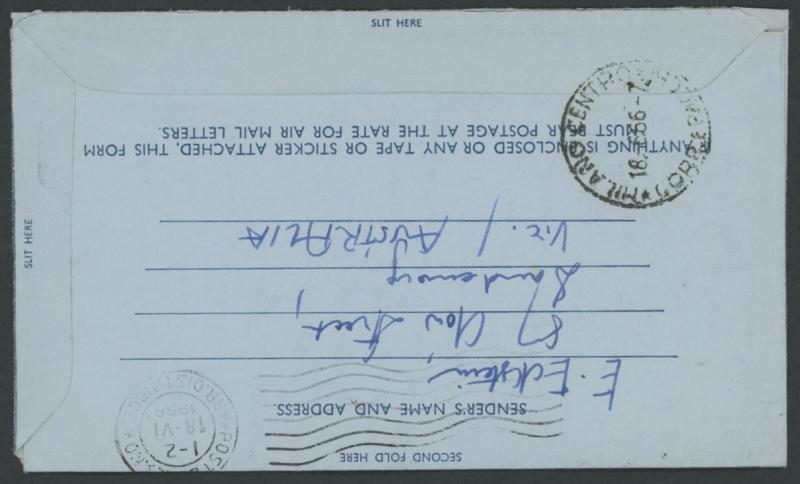 SLIT HERE
SLIT HERE
SECOND FOLD HERE
SENDER'S NAME AND ADDRESS.
E. Eckstein
87 Clow Street,
Dandenong
Vic. / AUSTRALIA
IF ANYTHING IS ENCLOSED OR ANY TAPE OR STICKER ATTACHED, THIS FORM
MUST BEAR POSTAGE AT THE RATE FOR AIR MAIL LETTERS.
MILANO CENTRO
18. 66-7
1-2
18·VI
1966
ARR.DISTRIBUZ